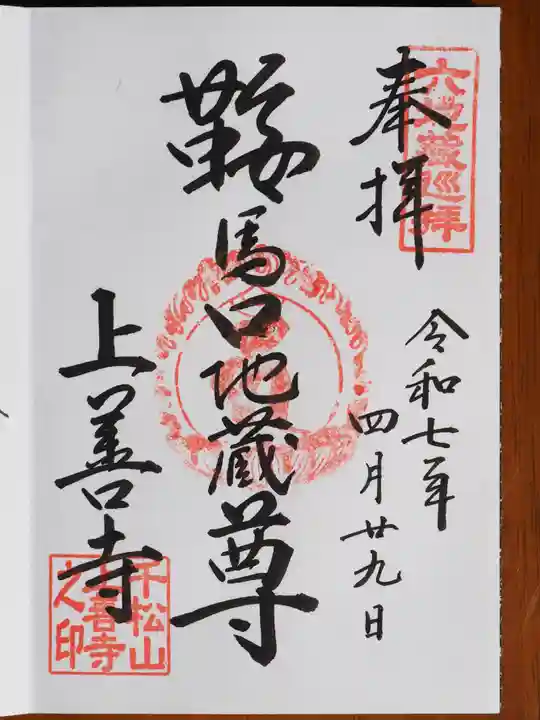 六地蔵巡拝
奉拝
令和七年
四月廿九日
鞍馬口地蔵尊
上善寺
千松山
上善寺
之印